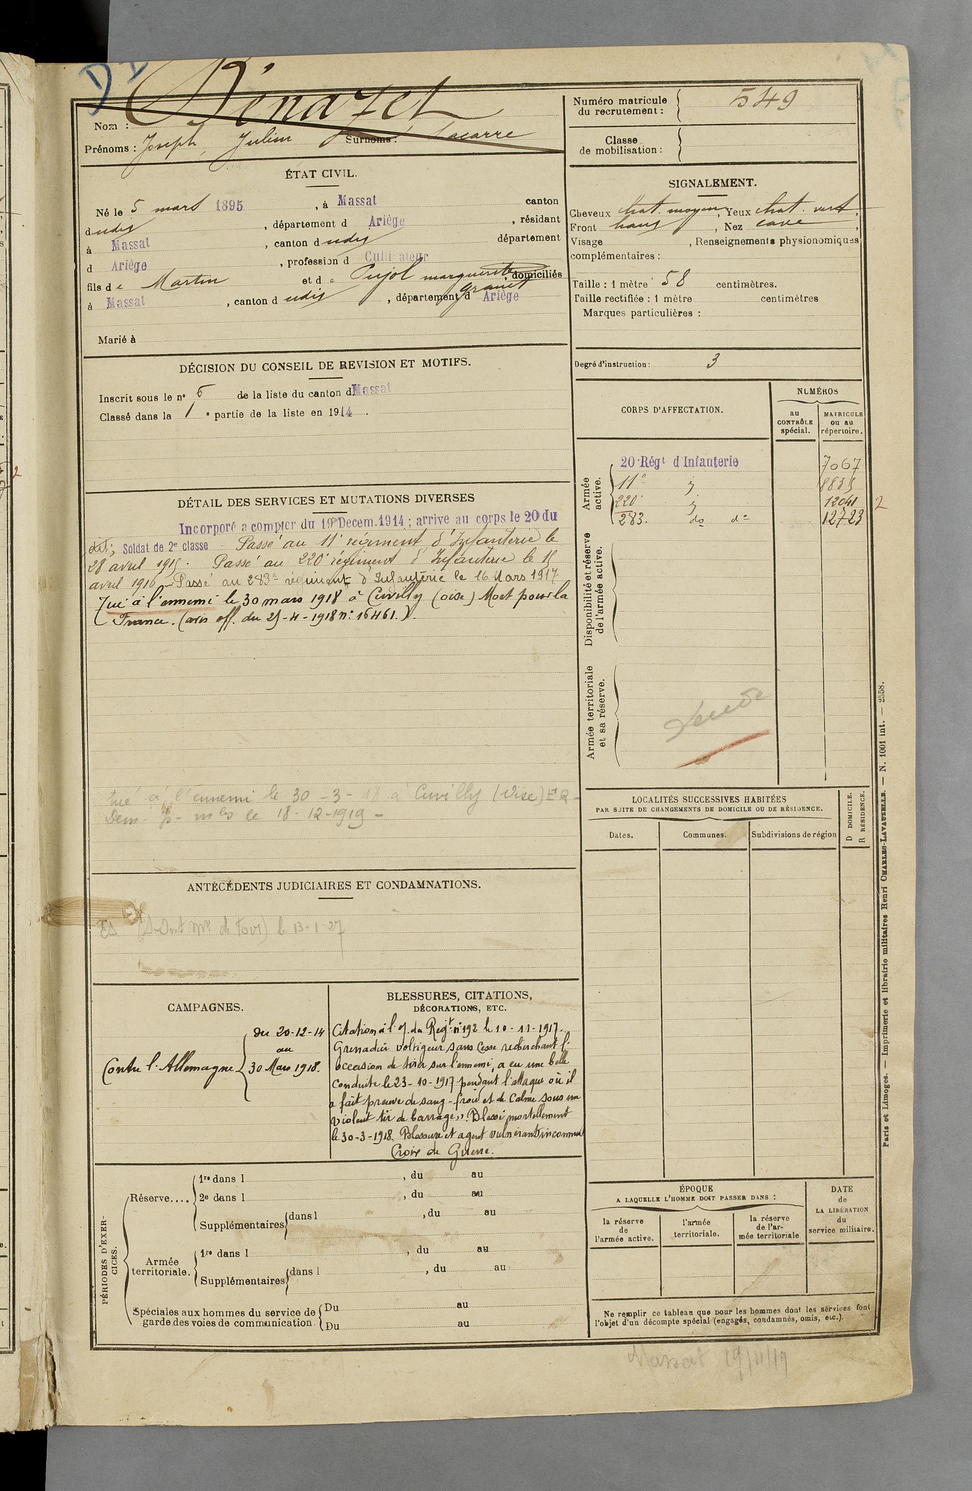 D
Bénazet
Nom :
Prénoms : Joseph, Julien Surnoms : Lacarre
Numéro matricule du recrutement : 549
Classe de mobilisation :
ÉTAT CIVIL.
Né le 5 mars 1895, à Massat canton
dudit, département d Ariège, résidant
à Massat, canton dudit département
d Ariège, profession d Cultivateur
fils de Martin et de Pujol marguerite domiciliés
à Massat, canton dudit, département d Ariège
Marié à
SIGNALEMENT.
Cheveux chat. moyen, Yeux chat. vert,
Front haut, Nez cave
Visage , Renseignements physionomiques
complémentaires :
Taille : 1 mètre 58 centimètres.
Taille rectifiée : 1 mètre centimètres
Marques particulières :
Degré d'instruction : 3
DÉCISION DU CONSEIL DE REVISION ET MOTIFS.
Inscrit sous le nº 6 de la liste du canton d Massat
Classé dans la 1 e partie de la liste en 1914.
CORPS D'AFFECTATION.
NUMÉROS
au CONTRÔLE spécial.
MATRICULE OU AU répertoire.
Armée active.
20e Régt d'Infanterie 7067
11e
220e 12041
283. do do 12723
2
Disponibilité et réserve de l'armée active.
Armée territoriale et sa réserve.
DÉTAIL DES SERVICES ET MUTATIONS DIVERSES
Incorporé à compter du 19 Décem. 1914 ; arrive au corps le 20 du
dit ; Soldat de 2e classe Passé au 11e régiment d'Infanterie le
28 avril 1915. Passé au 220e régiment d'Infanterie le 15
avril 1916 - Passé au 283e régiment d'Infanterie le 16 Mars 1917
Tué à l'ennemi le 30 mars 1918 à Cuvilly (oise) Mort pour la
France. (avis off. du 25-4-1918 n: 16461.)
tué à l'ennemi le 30-3-18 à Cuvilly (Oise)
le 18-12-1919 -
LOCALITÉS SUCCESSIVES HABITÉES
PAR SUITE DE CHANGEMENTS DE DOMICILE OU DE RÉSIDENCE.
Dates.
Communes.
Subdivisions de région
D DOMICILE.
R RÉSIDENCE.
ANTÉCÉDENTS JUDICIAIRES ET CONDAMNATIONS.
le 13-1-27
CAMPAGNES.
Contre l'Allemagne du 20-12-14
au
30 Mars 1918.
BLESSURES, CITATIONS,
DÉCORATIONS, ETC.
Citation à l'O. du Régt nº 192 le 10-11-1917.
Grenadier voltigeur sans cesse recherchant l'
occasion de tirer sur l'ennemi, a eu une belle
conduite le 23-10-1917 pendant l'attaque où il
a fait preuve de sang-froid et de calme sous un
violent tir de barrage". Blessé mortellement
le 30-3-1918. Blessure et agent vulnérant inconnus
Croix de Guerre.
PÉRIODES D'EXERCICES.
Réserve....
1re dans l , du au
2e dans l , du au
Supplémentaires dans l , du au
Armée territoriale.
1re dans l , du au
Supplémentaires dans l , du au
Spéciales aux hommes du service de garde des voies de communication
Du au
Du au
ÉPOQUE
A LAQUELLE L'HOMME DOIT PASSER DANS :
la réserve de l'armée active.
l'armée territoriale.
la réserve de l'armée territoriale
DATE
de
LA LIBÉRATION
du
service militaire.
Ne remplir ce tableau que pour les hommes dont les services font
l'objet d'un décompte spécial (engagés, condamnés, omis, etc.).
Massat 19/11/19
Paris et Limoges. — Imprimerie et librairie militaires Henri CHARLES-LAVAUZELLE. — N. 1001 int. — 2558.